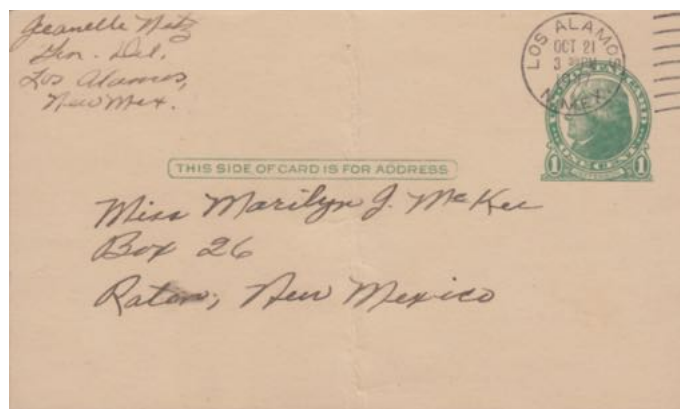 Jeanette Netz
Gen. Del.
Los Alamos,
New Mex.
LOS ALAMOS
OCT 21
3 PM
N. MEX.
ONE CENT
1 1
THIS SIDE OF CARD IS FOR ADDRESS
Miss Marilyn J. McKee
Box 26
Raton, New Mexico